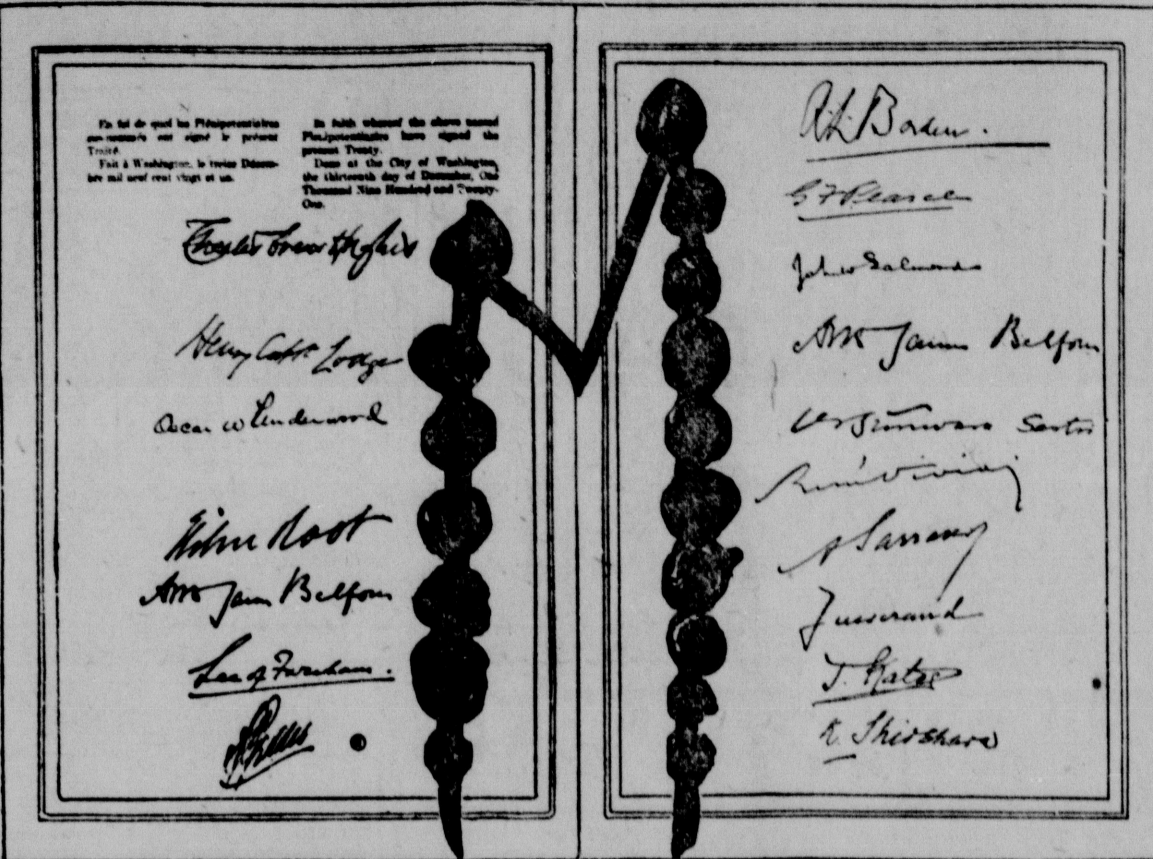 En foi de quoi les Plénipotentiaires
sus-nommés ont signé le présent
Traité.
Fait à Washington, le treize Décem-
bre mil neuf cent vingt et un.
In faith whereof the above named
Plenipotentiaries have signed the
present Treaty.
Done at the City of Washington,
the thirteenth day of December, One
Thousand Nine Hundred and Twenty-
One.
Charles Evans Hughes
Henry Cabot Lodge
Oscar W Underwood
Elihu Root
Arthur James Balfour
Lee of Fareham.
R. L. Borden.
G F Pearce
John W Salmond
Arthur James Balfour
V S Srinivasa Sastri
René Viviani
A Sarraut
Jusserand
T. Kato
K. Shidehara